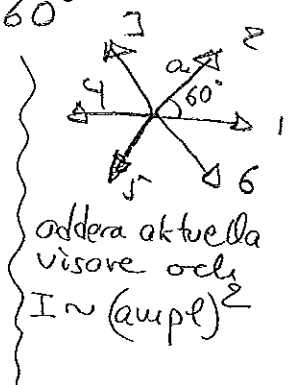 60°
3 2
a
60°
4 1
5 6
addera aktuella
visare och
I ~ (ampl)²